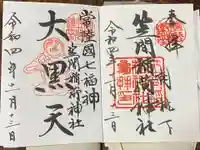 奉拝
笠間稲荷神社
令和四年十一月十三日
常陸國七福神
笠間稲荷神社
大黒天
令和四年十一月十三日